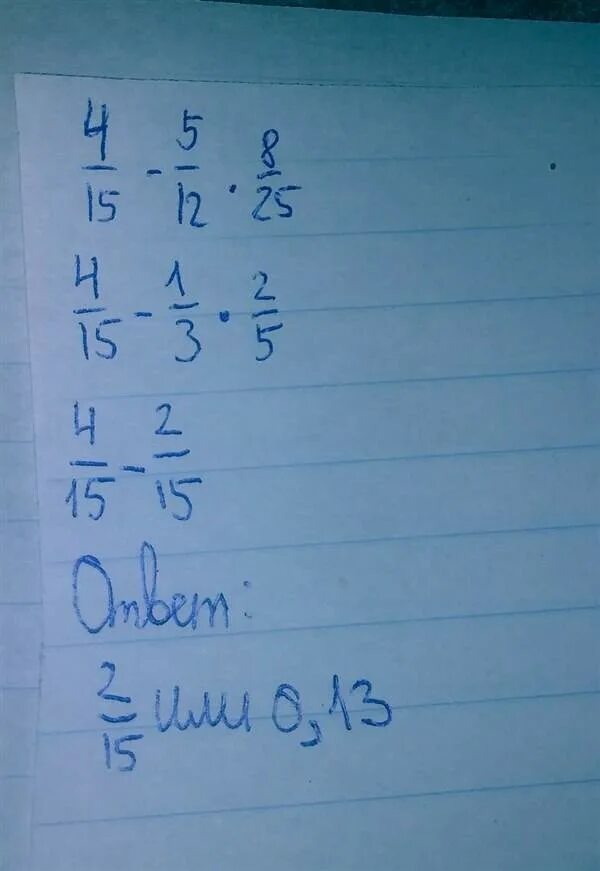 4/15 - 5/12 · 8/25
4/15 - 1/3 · 2/5
4/15 - 2/15
Ответ:
2/15 или 0,13